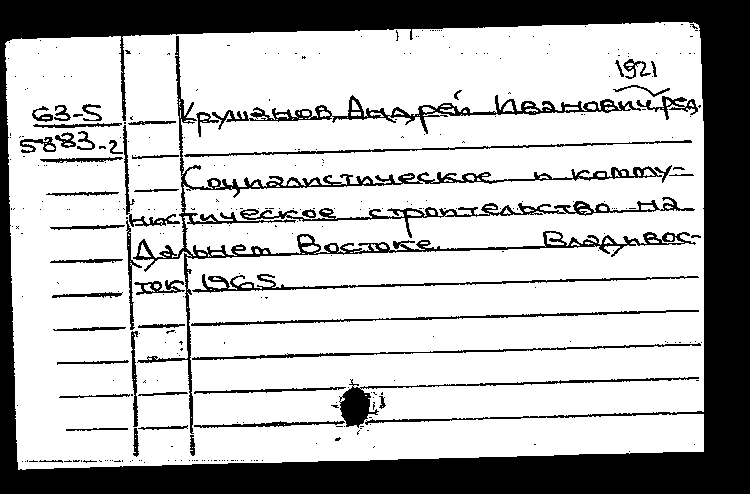 1921
63-5 Крушанов, Андрей Иванович, ред.
5883-2
Социалистическое и комму-
нистическое строительство на
Дальнем Востоке. Владивос-
ток, 1965.